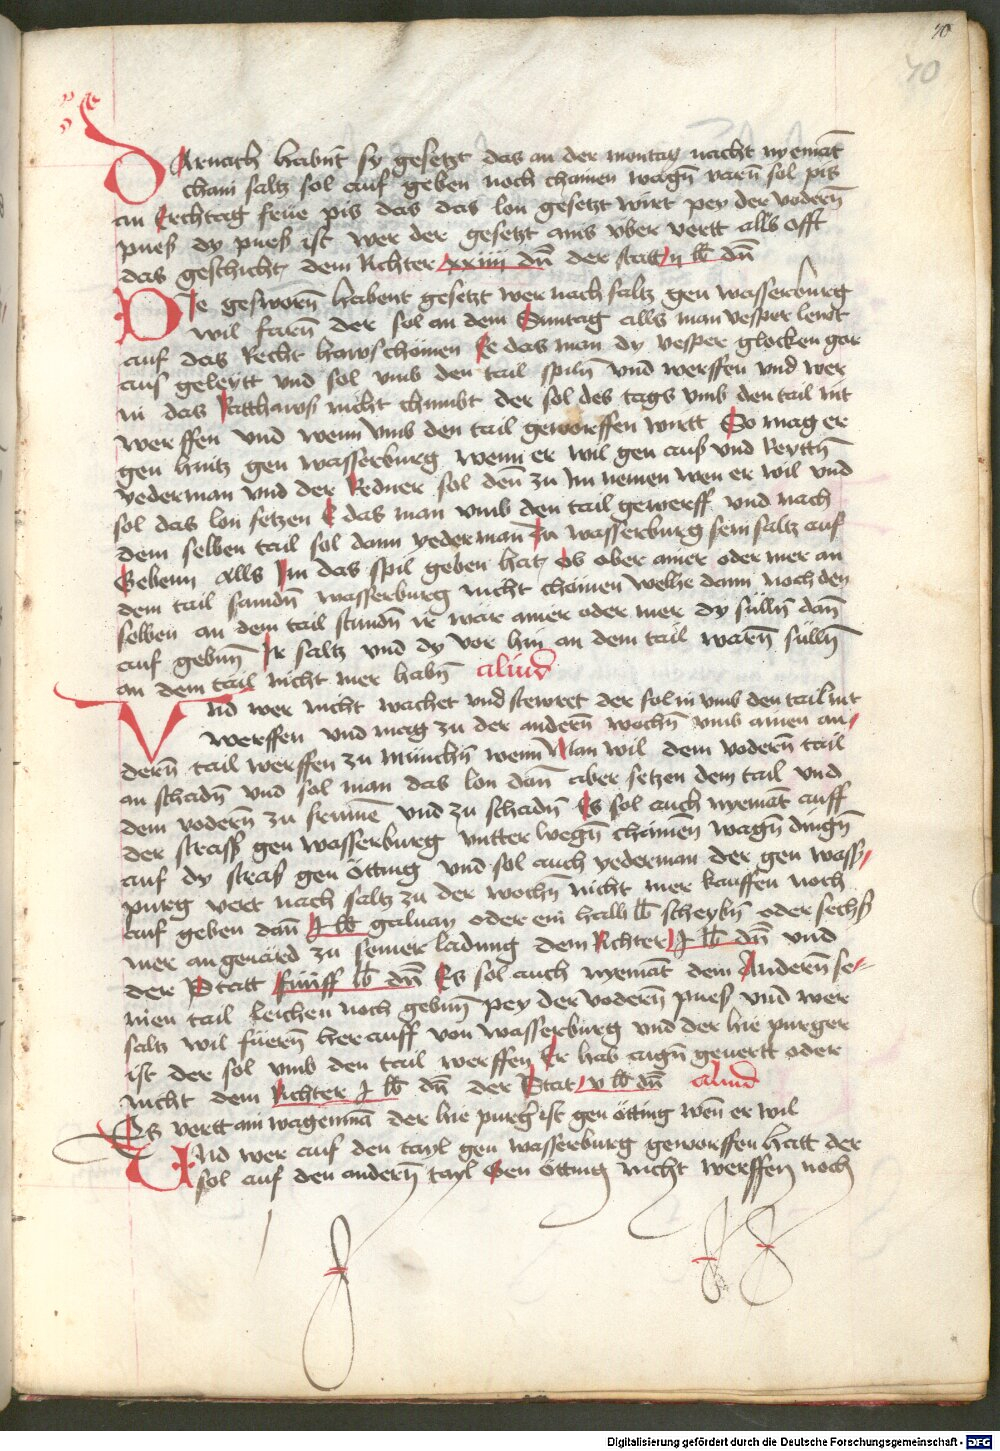 70
70
DArnach habnt sy gesetzt das an der montag nacht nyemant
chain saltz sol auf geben noch chainen wagn varn sol pis
an Erchtag früe pis das das lon gesetzt wirt pey der vodern
pueß dy pueß ist wer der gesetzt ains vber vertt alls offt
das geschicht dem Richter xxiiii dn der statt ii lb dn
DIe geswornn habent gesetzt wer nach saltz gen wasserburg
wil farn der sol an dem Suntag alls man vesper lewt
auf das Recht hawß chömen Ee das man dy vesper glocken gar
aus geleytt vnd sol vmb den tail spiln vnd werffen vnd wer
in das Ratthawß nicht chumbt der sol des tags vmb den tail nit
werffen vnd wenn vmb den tail geworffen wirtt So mag er
gen hintz gen wasserburg wenn er wil gen auß vnd Reyttn
yederman vnd der Redner sol denn zu Im nemen wen er wil vnd
sol das lon setzen E das man vmb den tail gewerff vnd nach
dem selben tail sol dann yederman zu wasserburg sein saltz auf
Gebenn alls Im das spil geben hat Ob aber ainer oder mer an
dem tail stundn wasserburg nicht chömen welhe dann noch den
selben an dem tail stundn ir wär ainer oder mer dy sülln dann
auf gebnn Ir saltz vnd dy vor hin an dem tail warn sülln
an dem tail nicht mer habn aliud
Vnd wer nicht wachet vnd stewret der sol in vmb den tail nit
werffen vnd mag zu der anderen wochn vmb ainen an
dern tail werffen zu münchn wenn Man wil dem vodern tail
an schadn vnd sol man das lon dann aber setzen dem tail vnd
dem vodern zu frumen vnd zu schadn Es sol auch nyemant auff
der strass gen wasserburg vntter wegn chainen wagn dingn
auf dy straß gen ötting vnd sol auch yederman der gen wass
purg vert nach saltz zu der wochn nicht mer kauffen noch
auf geben dann j lb galuay oder ein halb lb scheybn oder sechß
mer an geuärd zu seiner ladung dem Richter j lb dn vnd
der Statt fünff lb dn Es sol auch nyemant dem Anderen se
nien tail leichen noch gebnn pey der vodern pueß vnd wer
saltz wil füern herauff von wasserburg vnd der hie purger
ist der sol vmb den tail werffen Er hab aign geuertt oder
nicht dem Richter j lb dn der Stat v lb dn aliud
Es vertt ain wagenman der hie purger ist gen ötting wen er wil
Vnd wer auf den tayl gen wasserburg geworffen hatt der
sol auf den andern tayl Gen ötting nicht werffen noch
Digitalisierung gefördert durch die Deutsche Forschungsgemeinschaft - DFG